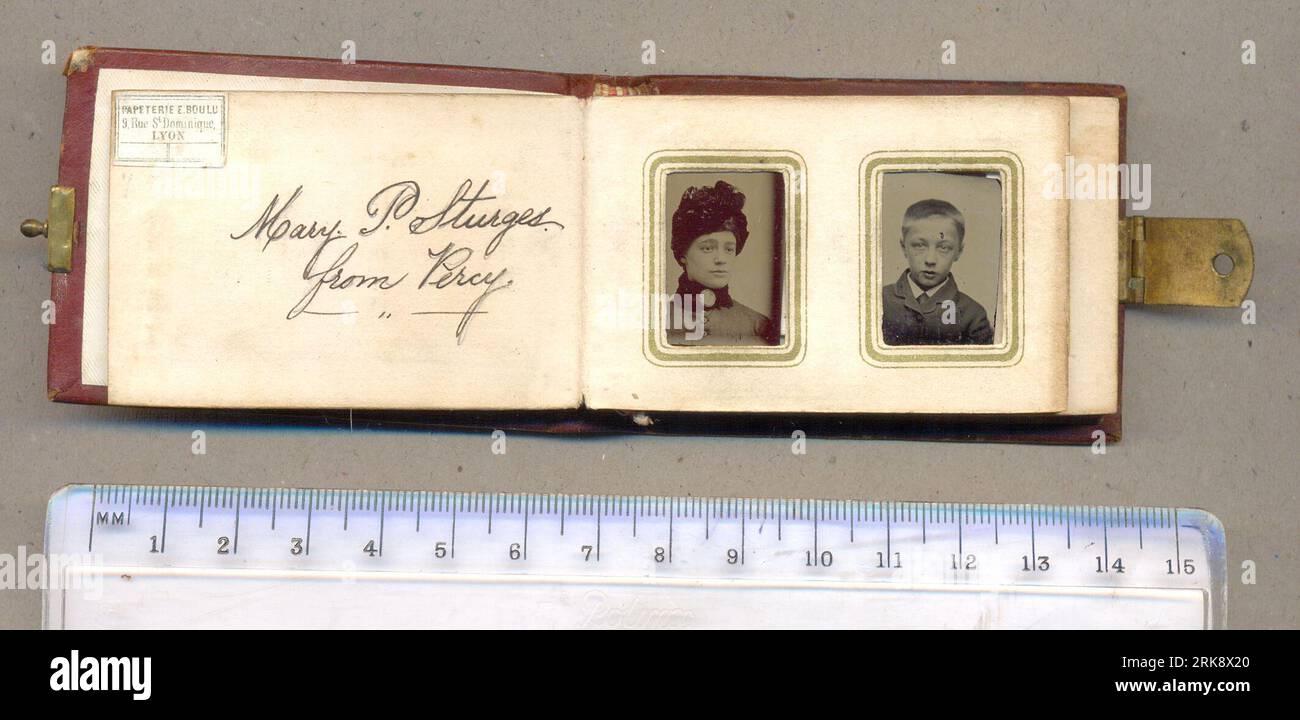 PAPETERIE E. BOULU
9, Rue St Dominique,
LYON
Mary. P. Sturges.
from Percy.
"
MM 1 2 3 4 5 6 7 8 9 10 11 12 13 14 15
alamy
alamy
Image ID: 2RK8X20
www.alamy.com